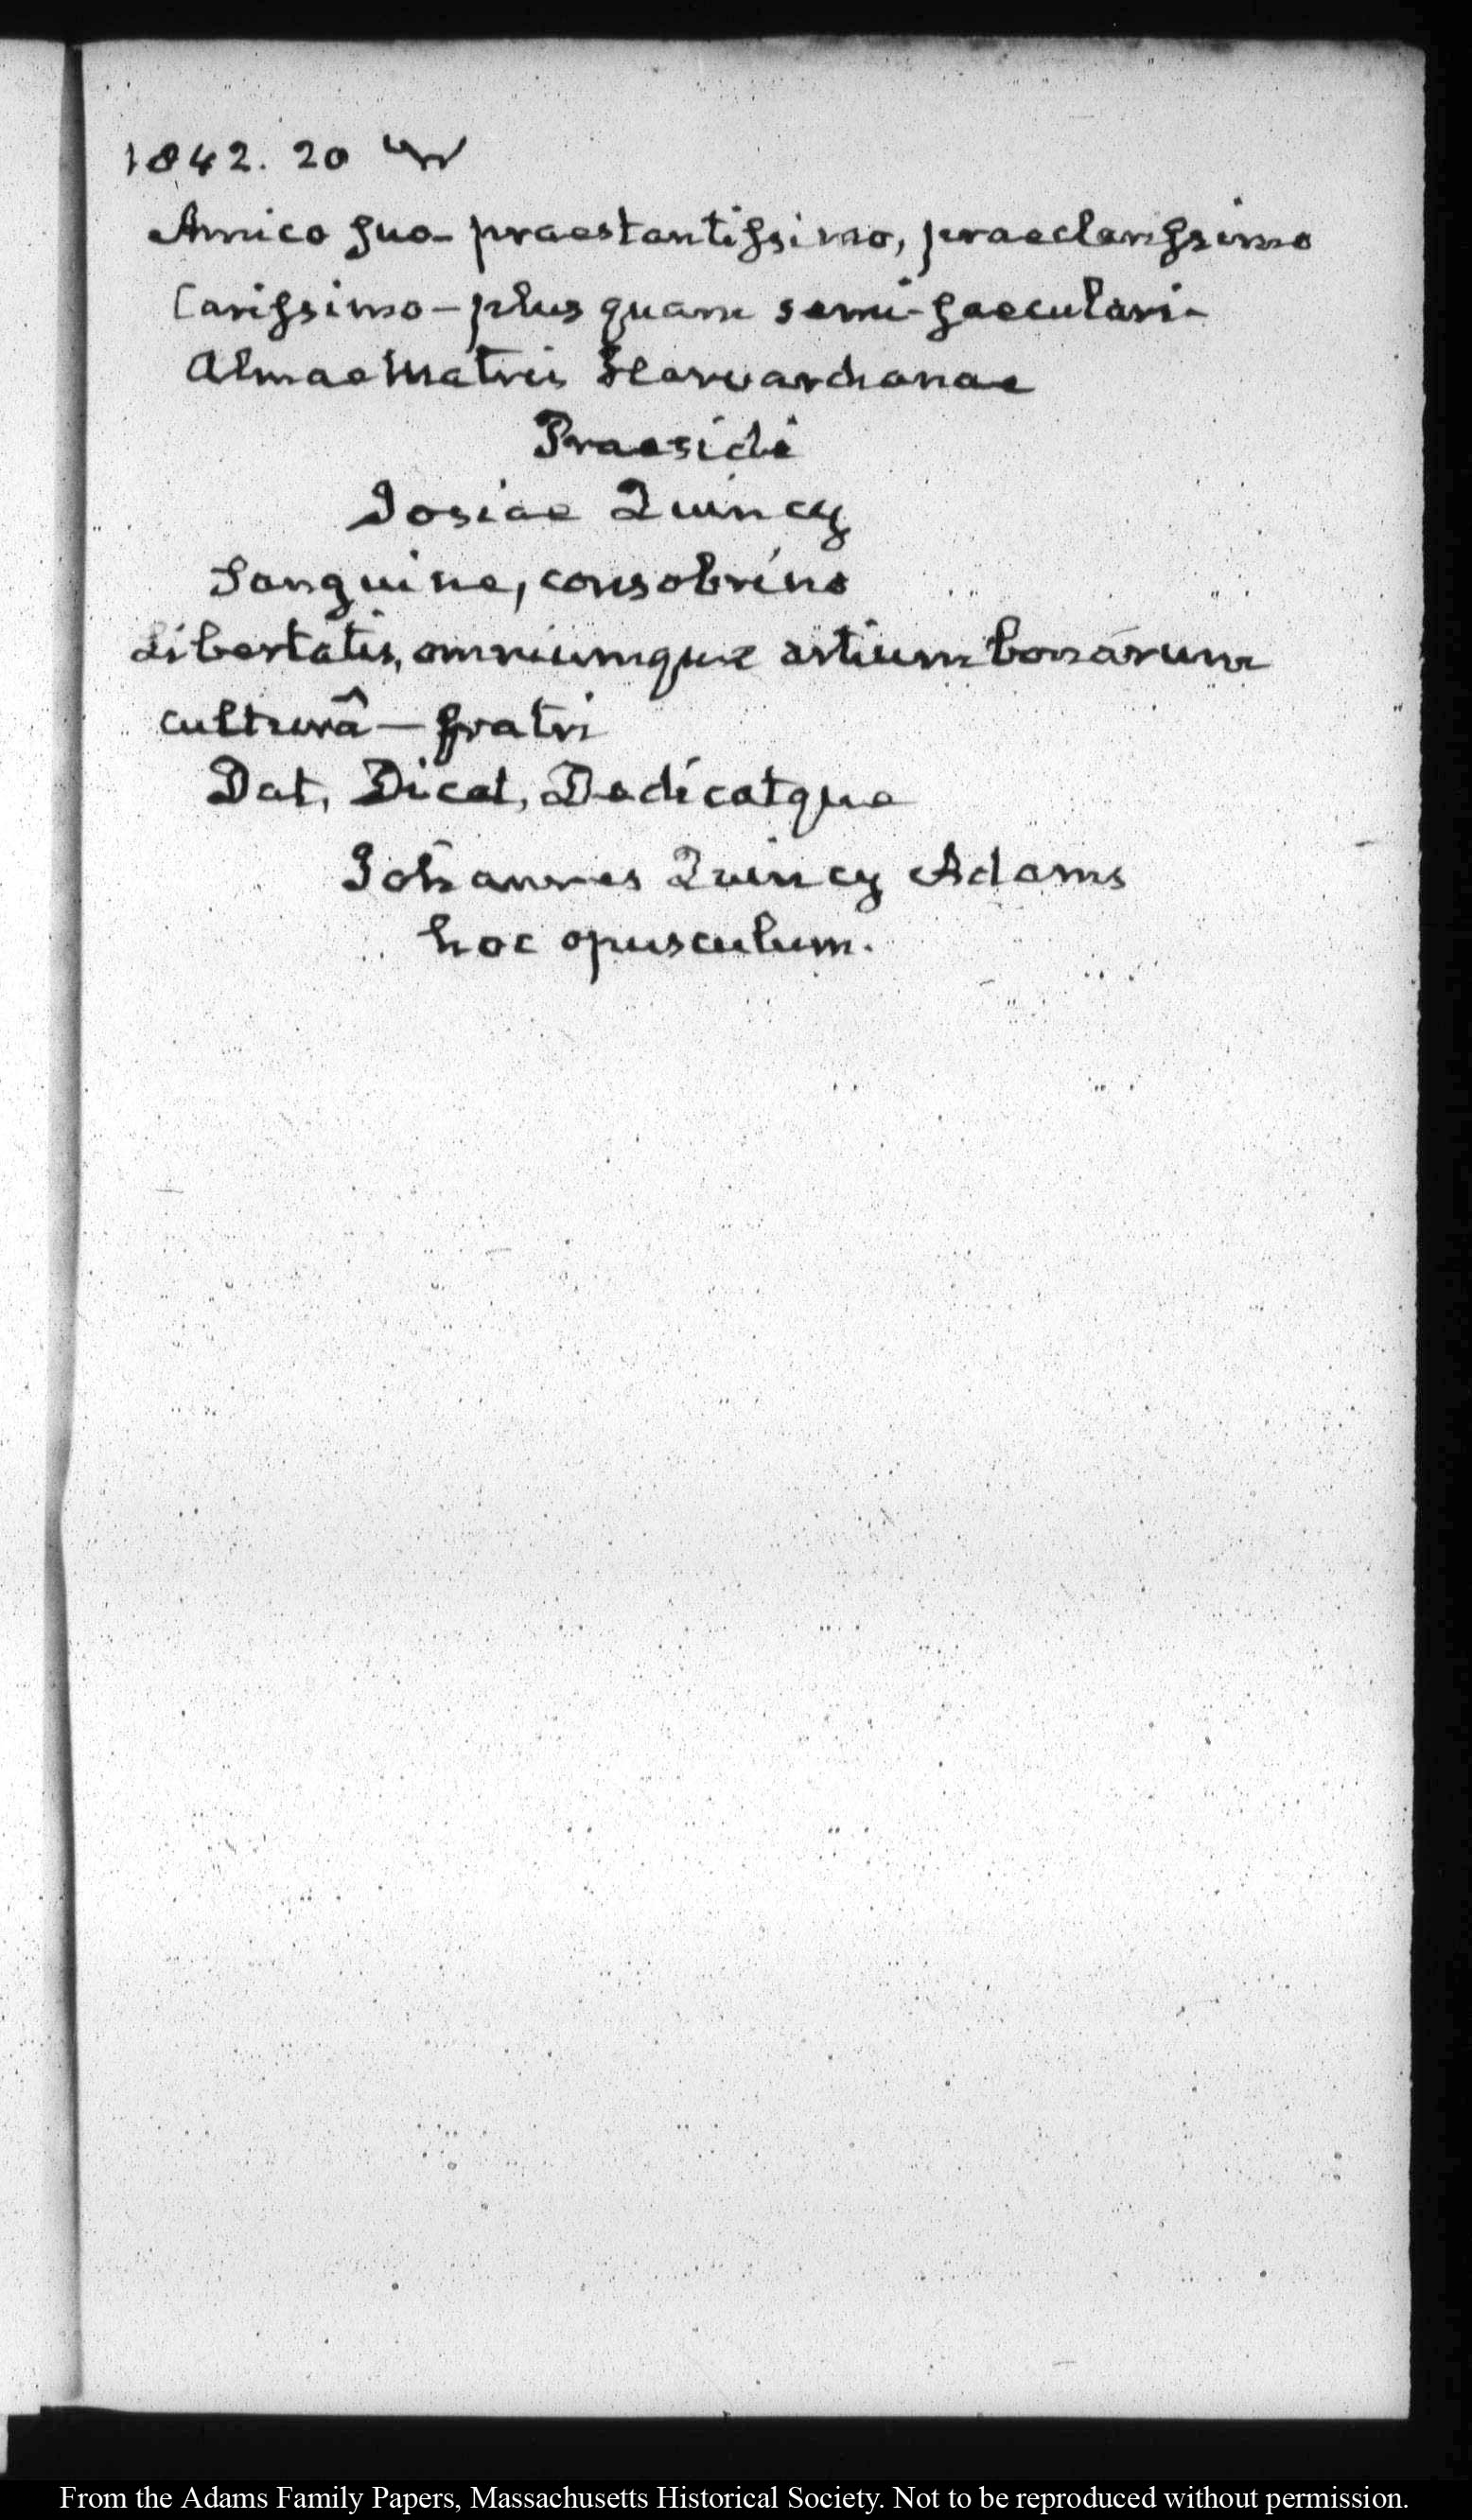 1842. 20
Amico suo- praestantissimo, praeclarissimo
Carissimo - plus quam semi-saeculari-
Almae Matris Harvardianae
Praesidi
Josiae Quincy
Sanguine, consobrino
Libertatis, omniumque artium bonarum
culturâ - fratri
Dat, Dicat, Dedicatque
Johannes Quincy Adams
hoc opusculum.
From the Adams Family Papers, Massachusetts Historical Society. Not to be reproduced without permission.